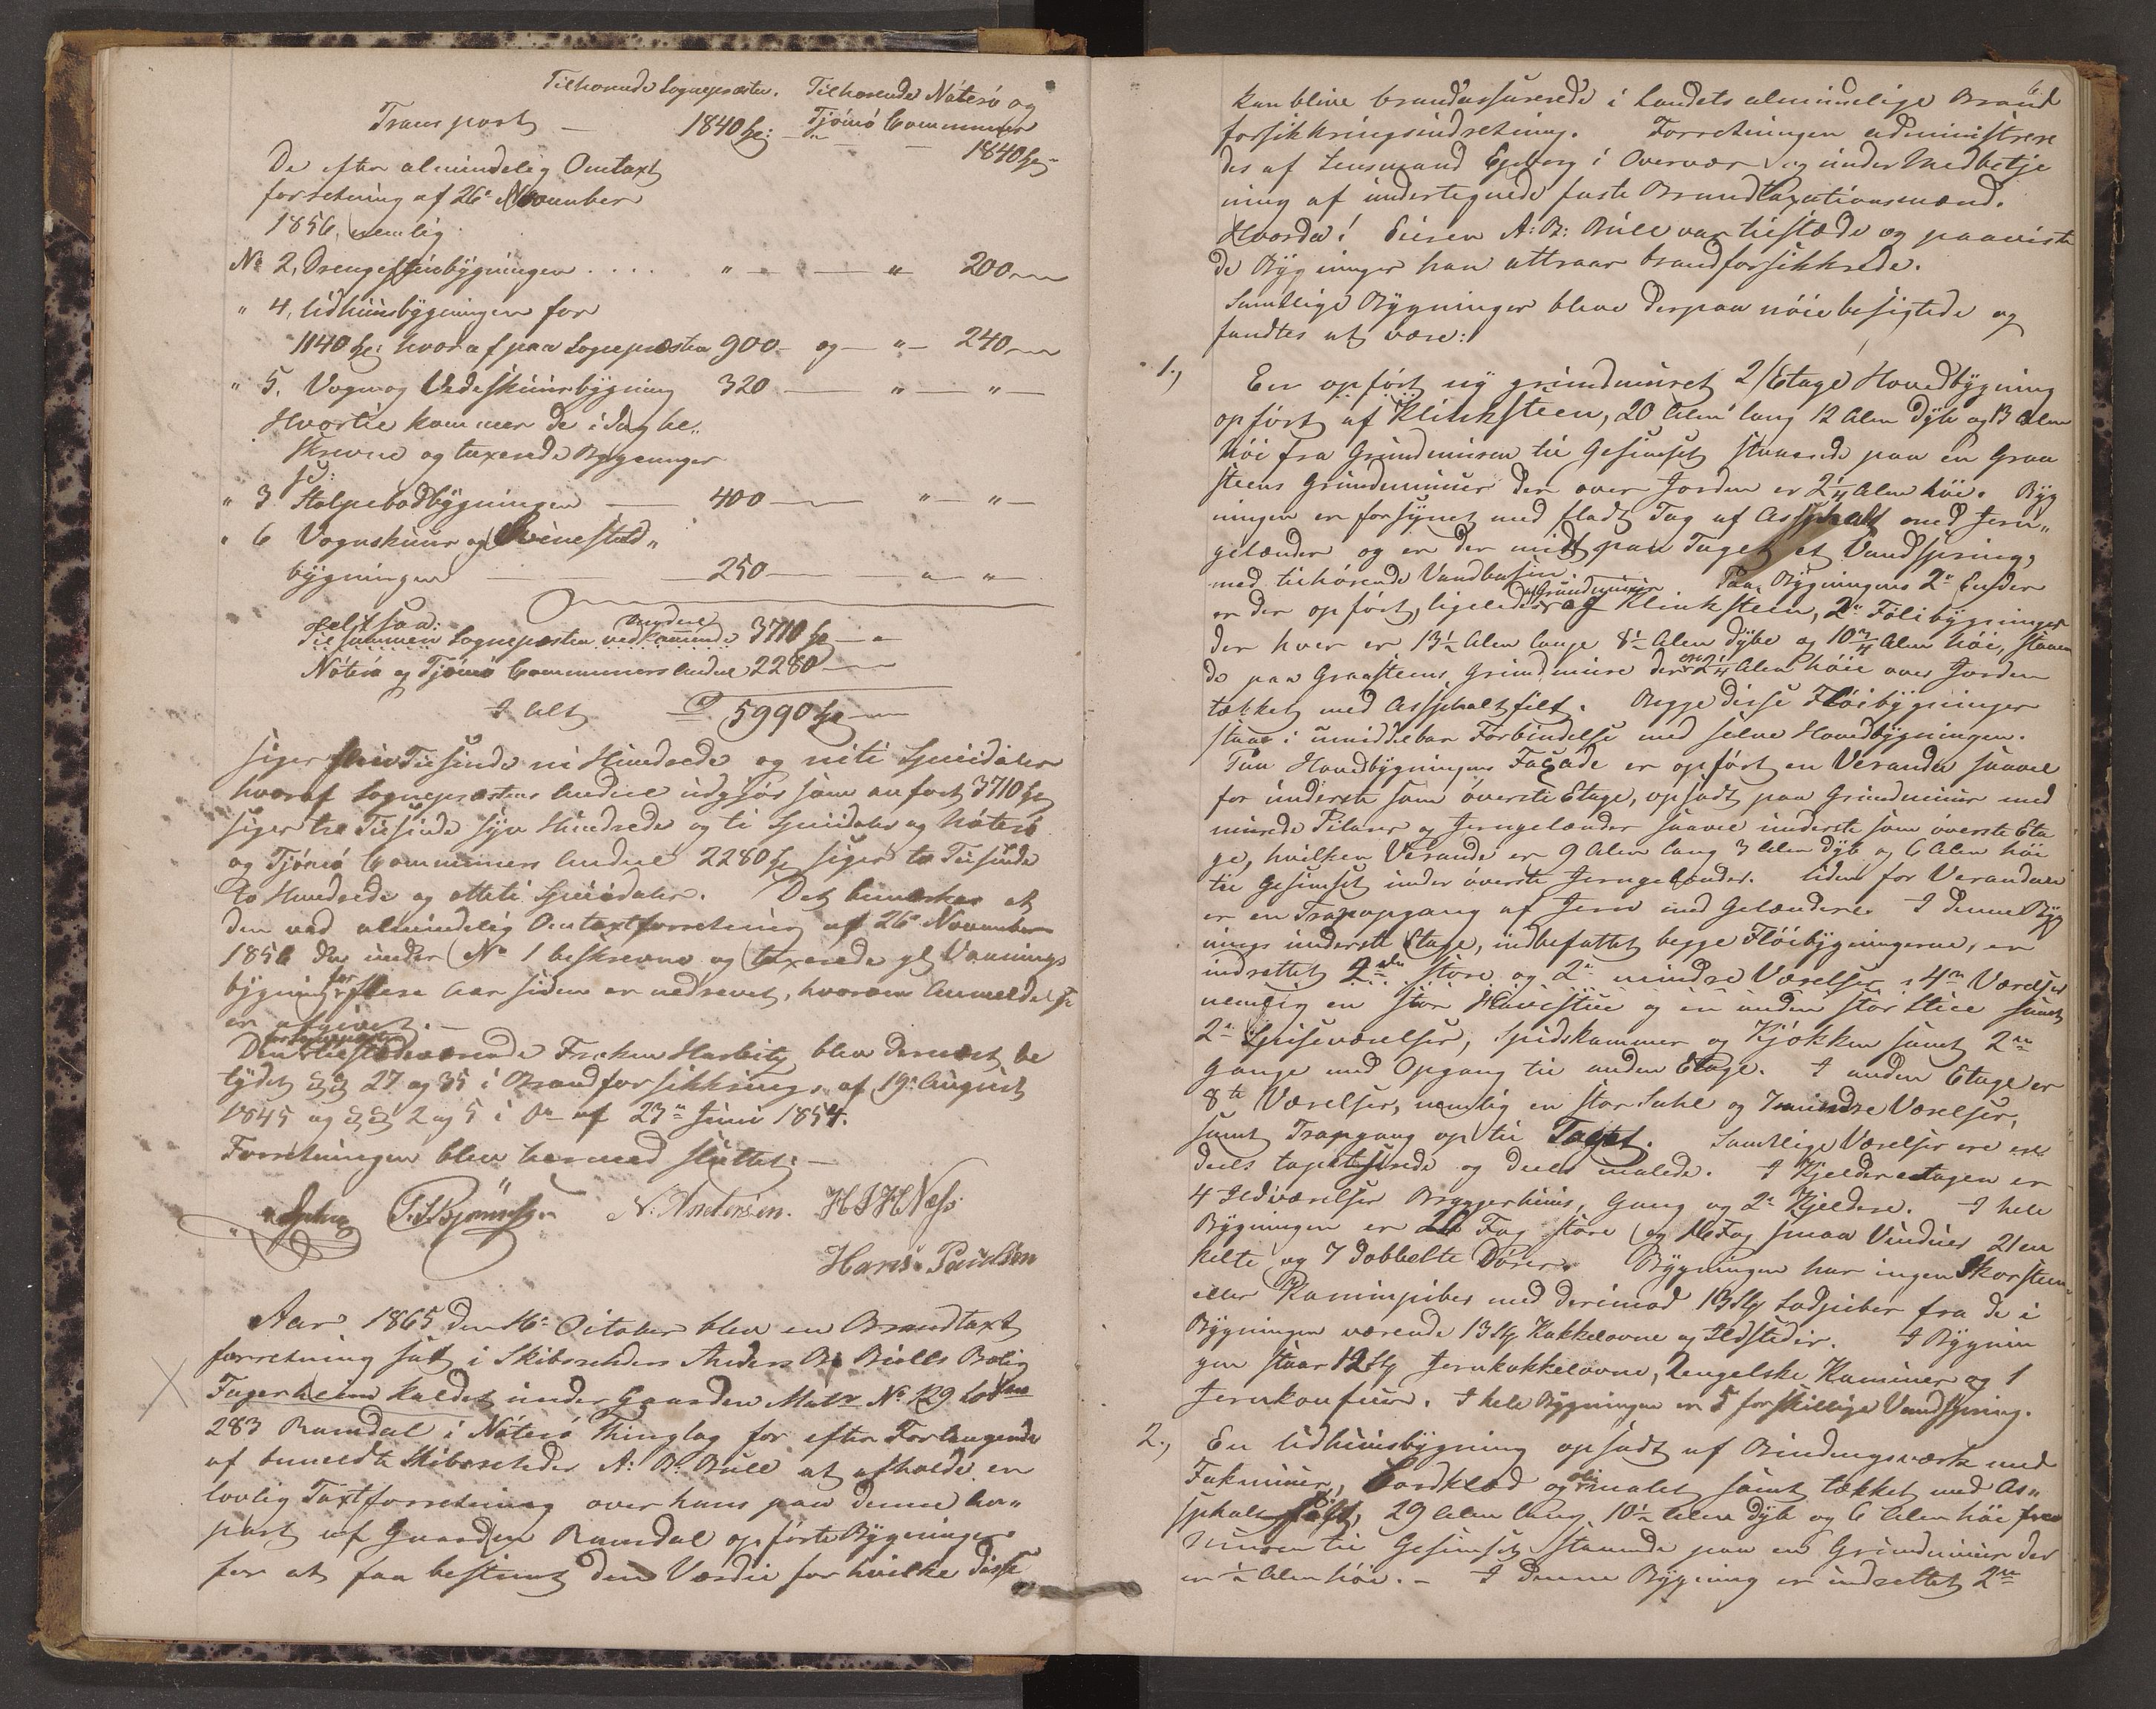 Tilhørende Sognepræsten. Tilhørende Nøterø og
Transport — 1840 Sp: Tjømø Communer
1840 Sp
De efter almindelig Omtaxt
forretning af 26de November
1856, nemlig
No 2, Drengestuebygningen .... " — — " 200 —
" 4, Udhuusbygningen for
1140 Sp: hvoraf paa Sognepræsten 900 — og — " — 240 —
" 5. Vogn og Vedeskuursbygning 320 — " — " —
Hvortil kommer de i dag be„
skrevne og taxerede Bygninger
se:
" 3 Stolpebodbygningen — 400 — " — " —
" 6 Vognskuur og Svinestald„
bygningen — 250 — " — "
altsaa:
Tilsammen Sognepræsten vedkommende 3710 Sp — "
Nøterø og Tjømø Communers Andeel 2280 —
I Alt 5990 Sp —
siger fem Tusinde ni Hundrede og niti Speciedaler
hvoraf Sognepræstens Andeel udgjør som anført 3710 Sp
siger tre Tusinde syv Hundrede og ti Speciedaler og Nøterø
og Tjømø Communers Andeel 2280 Sp siger to Tusinde
to Hundrede og otteti Speciedaler. Det bemærkes at
den ved almindelig Omtaxtforretning af 26de November
1856 den under No 1 beskrevne og taxerede gl. Vaanings
bygning for flere Aar siden er nedrevet, hvorom Anmeldelse
er afgivet. —
Den for Sognepræsten tilstedeværende Frøken blev dernæst be
tydet §§ 27 og 35 i Brandforsikrings. af 19de August
1845 og §§ 2 og 5 i Do af 23de Juni 1854.
Forretningen blev hermed sluttet. —
N. Andersen. H J H Næss
Hans Paulsen
Aar 1865 den 16de October blev en Brandtaxt
forretning sat i Skibsrheder Anders B. Bulls Bolig
Fagerheim kaldet under Gaarden Matr No 129 Løbno
283 Ramdal i Nøterø Thinglag for efter Forlangende
af bemeldte Skibsrheder A: B: Bull at afholde en
lovlig Taxtforretning over hans paa denne An„
part af Gaarden Ramdal opførte Bygninger
for at faa bestemt den Værdie for hvilke disse
6
kan blive brandassurerede i Landets almindelige Brand
forsikkringsindretning. Forretningen administrere
des af Lensmand i Overvær og under Medbetje
ning af undertegnede faste Brandtaxationsmænd.
Hvorda! Eieren A: B: Bull var tilstede og paaviste
de Bygninger han attraar brandforsikkrede.
Samtlige Bygninger bleve derpaa nøie besigtede og
fandtes at være:
1.) En opført ny grundmuret 2/Etage Hovedbygning
opført af Klinksteen, 20 Alen lang 12 Alen dyb og 13 Alen
høi fra Grundmuren til Gesimset staaende paa en Graa
steens Grundmuur der over Jorden er 2¼ Alen høi. Byg
ningen er forsynet med fladt Tag af Assphalt med Jern„
gelænder og er der midt paa Taget et Vandspring,
med tilhørende Vandbasin. Paa Bygningens 2de Ender
er der opført, ligeledes af Grundmuur af Klinksteen, 2de Fløibygninger
der hver er 13½ Alen lange 8½ Alen dybe og 10¾ Alen høi, staaen
de paa Graasteens Grundmure der ere 2¼ Alen høie over Jorden
tækket med Assphaltfilt. Begge disse Fløibygninger
staar i umiddelbar Forbindelse med selve Hovedbygningen.
Paa Hovedbygningens Façade er opført en Veranda saavel
for underste som øverste Etage, opsadt paa Grundmuur med
murede Pilarer og Jerngelænder saavel underste som øverste Eta
ge, hvilken Veranda er 9 Alen lang 3 Alen dyb og 6 Alen høi
til Gesimset under øverste Jerngelænder. Uden for Verandaen
er en Trapopgang af Jern med Gelændere. I denne Byg
nings underste Etage, indbefattet begge Fløibygningerne, er
indrettet 2de store og 2de mindre Værelser, 4re Værelser
nemlig en stor Havestue og en anden stor Stue samt
2de Spiseværelser, Spidskammer og Kjøkken samt 2de
Gange med Opgang til anden Etage. I anden Etage er
8te Værelser, nemlig en stor Sahl og 7 mindre Værelser,
samt Trapgang op til Taget. Samtlige Værelser ere
deels tapetserede og deels malede. I Kjelderetagen er
4 Ildværelser Bryggerhuus, Gang og 2de Kjeldere. I hele
Bygningen er 26 Fag store og 16 Fag smaa Vinduer 21 en
kelte og 7 dobbelte Dører. Bygningen har ingen Skorsteen
eller Kaminpiber med derimod 13 Stk Lodpiber fra de i
Bygningen værende 13 Stk Kakkelovne og Ildsteder. I Bygnin
gen staar 12 Stk Jernkakkelovne, 2 engelske Kaminer og 1
Jernkomfuur. I hele Bygningen er 5 forskillige Vandspring.
2.) En Udhuusbygning opsadt af Bindingsværk med
Fakmuur, Bordklæd og oliemalet samt tækket med As„
sphaltfilt, 29 Alen lang, 10½ Alen dyb og 6 Alen høi fra
Muren til Gesimset staaende paa en Grundmuur der
er ½ Alen høi. — I denne Bygning er indrettet 2de